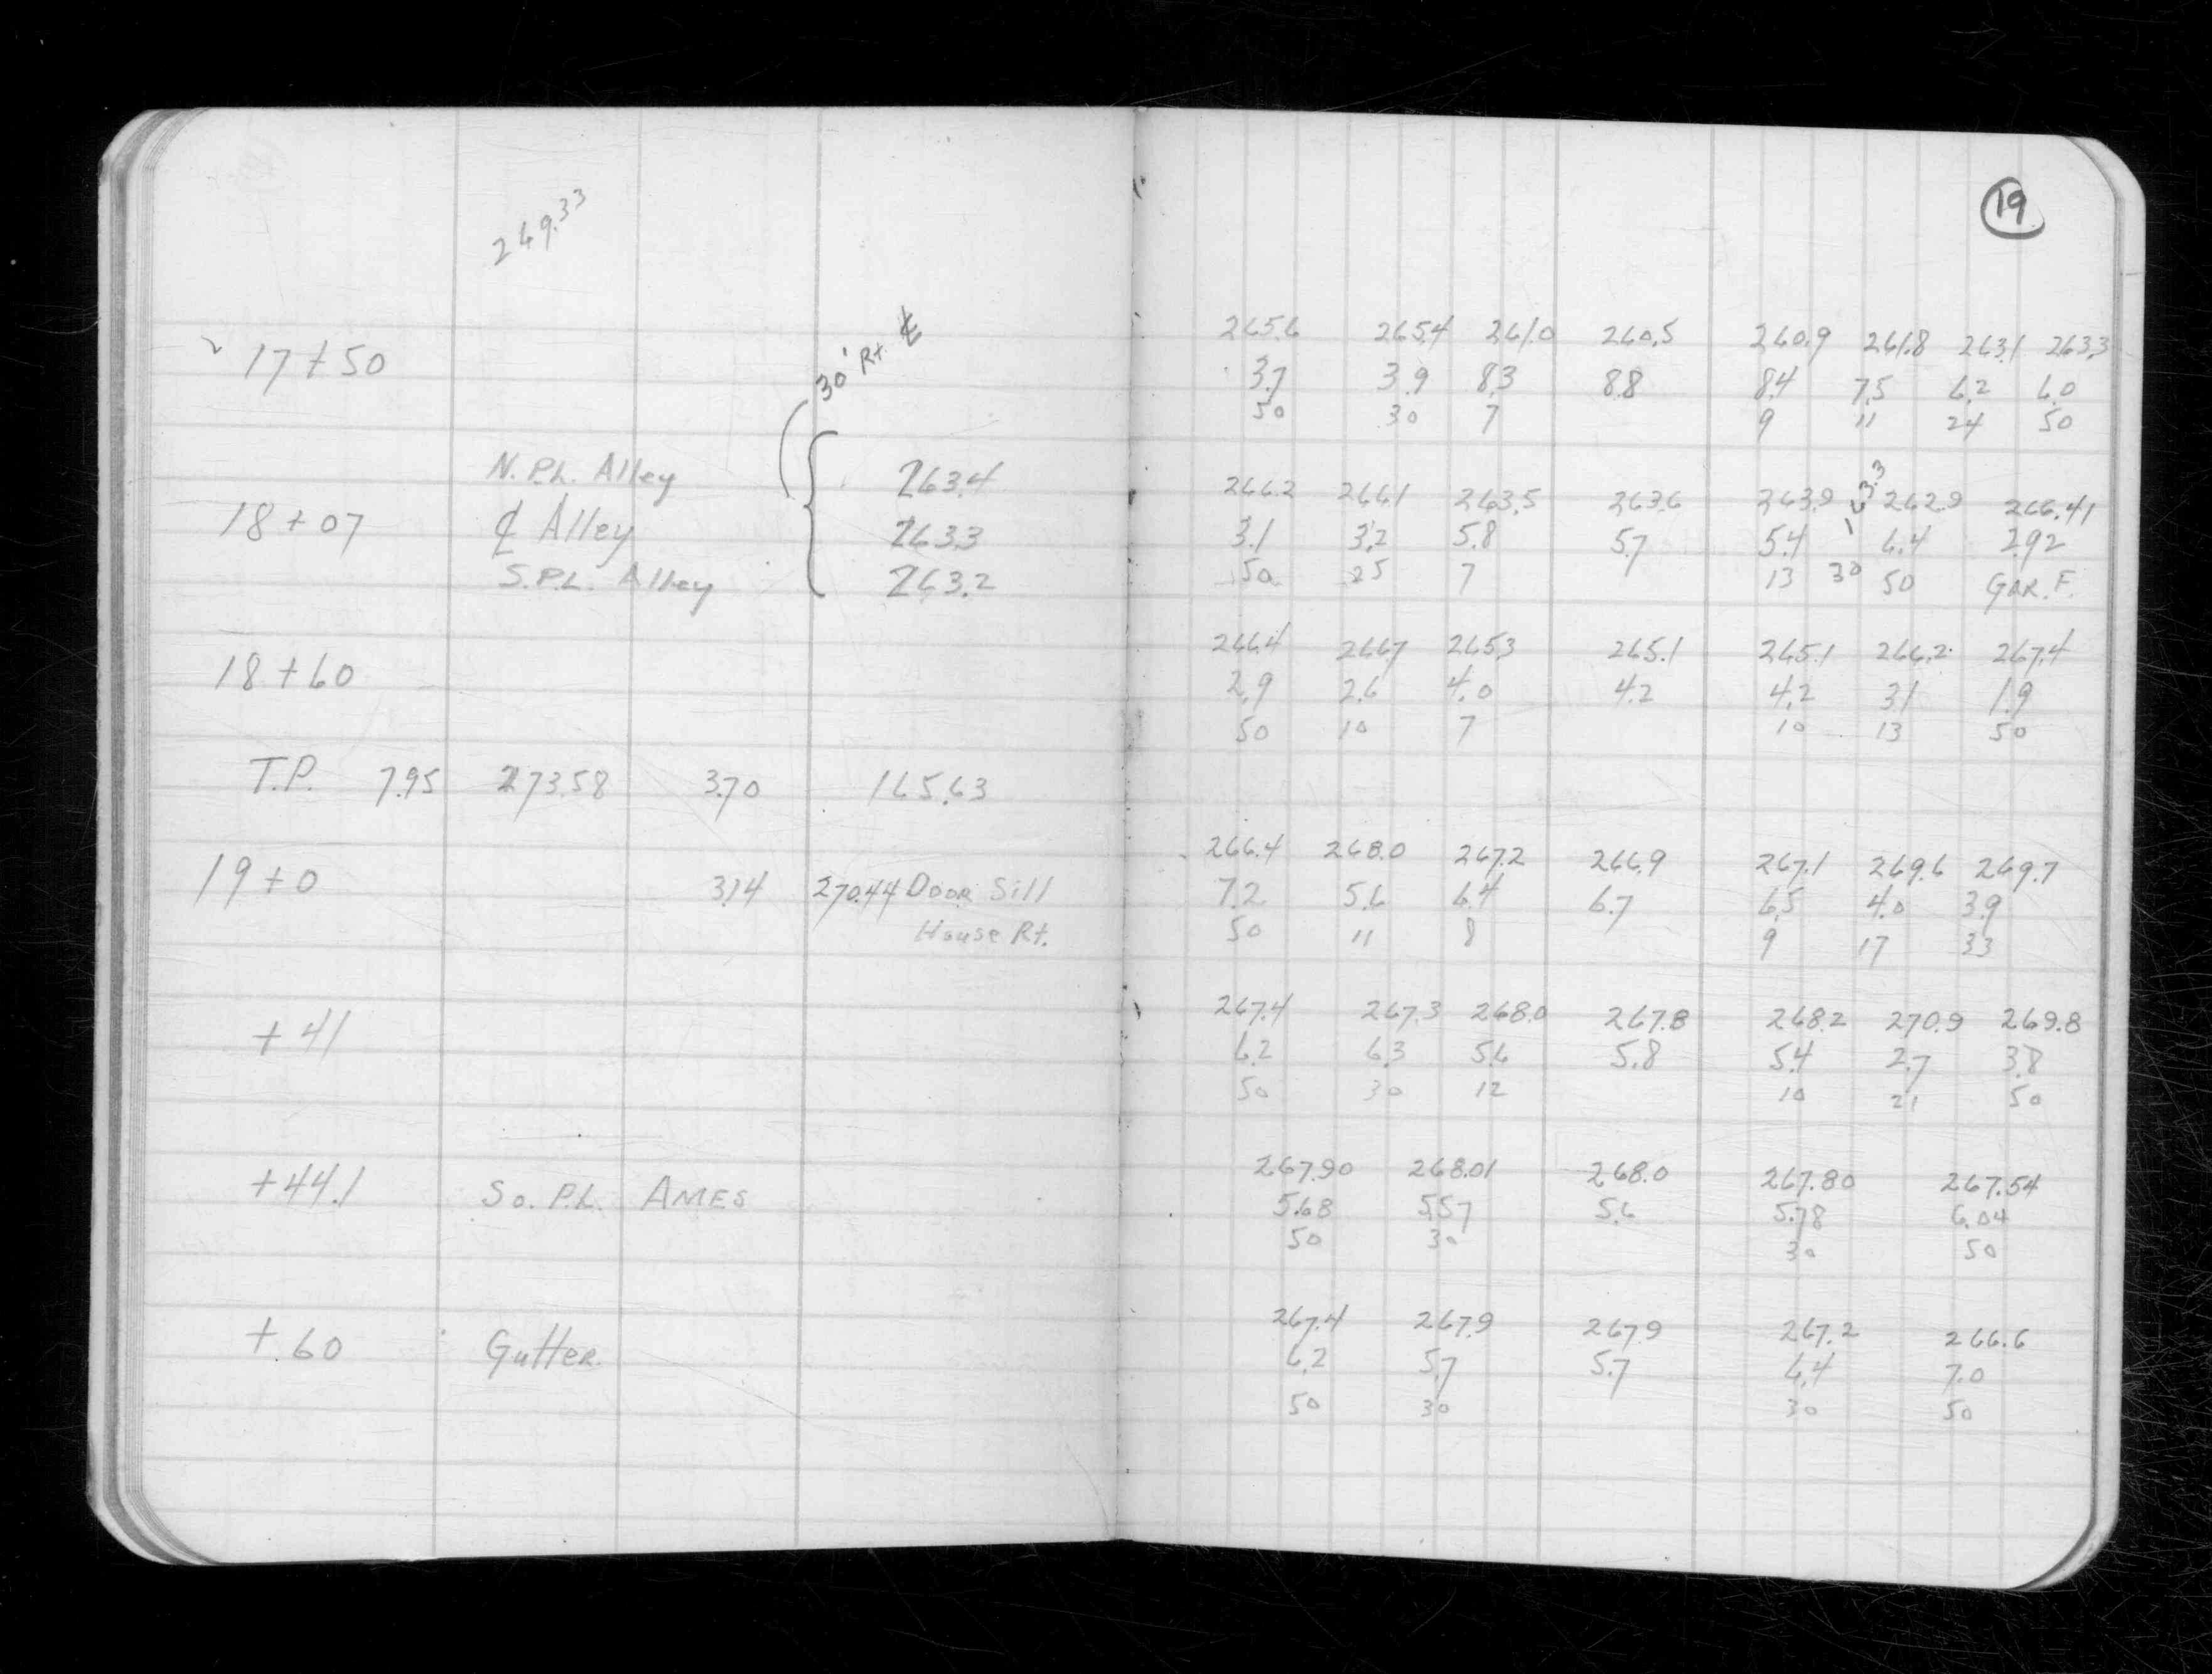 19
249.33
30' Rt. ℄
17+50 265.6 265.4 261.0 260.5 260.9 261.8 263.1 263.3
3.7 3.9 8.3 8.8 8.4 7.5 6.2 6.0
50 30 7 9 11 24 50
N. P.L. Alley 263.4 266.2 266.1 263.5 263.6 263.9 263.3 262.9 266.41
18+07 ℄ Alley 263.3 3.1 3.2 5.8 5.7 5.4 6.4 2.92
S. P.L. Alley 263.2 50 25 7 13 30 50 GAR. F.
18+60 266.4 266.7 265.3 265.1 265.1 266.2 267.4
2.9 2.6 4.0 4.2 4.2 3.1 1.9
50 10 7 10 13 50
T.P. 7.95 273.58 3.70 165.63
266.4 268.0 267.2 266.9 267.1 269.6 269.7
19+0 3.14 270.44 Door Sill 7.2 5.6 6.4 6.7 6.5 4.0 3.9
House Rt. 50 11 8 9 17 33
+41 267.4 267.3 268.0 267.8 268.2 270.9 269.8
6.2 6.3 5.6 5.8 5.4 2.7 3.8
50 30 12 10 21 50
267.90 268.01 268.0 267.80 267.54
+44.1 So. P.L. AMES 5.68 5.57 5.6 5.78 6.04
50 30 30 50
267.4 267.9 267.9 267.2 266.6
+60 Gutter. 6.2 5.7 5.7 6.4 7.0
50 30 30 50